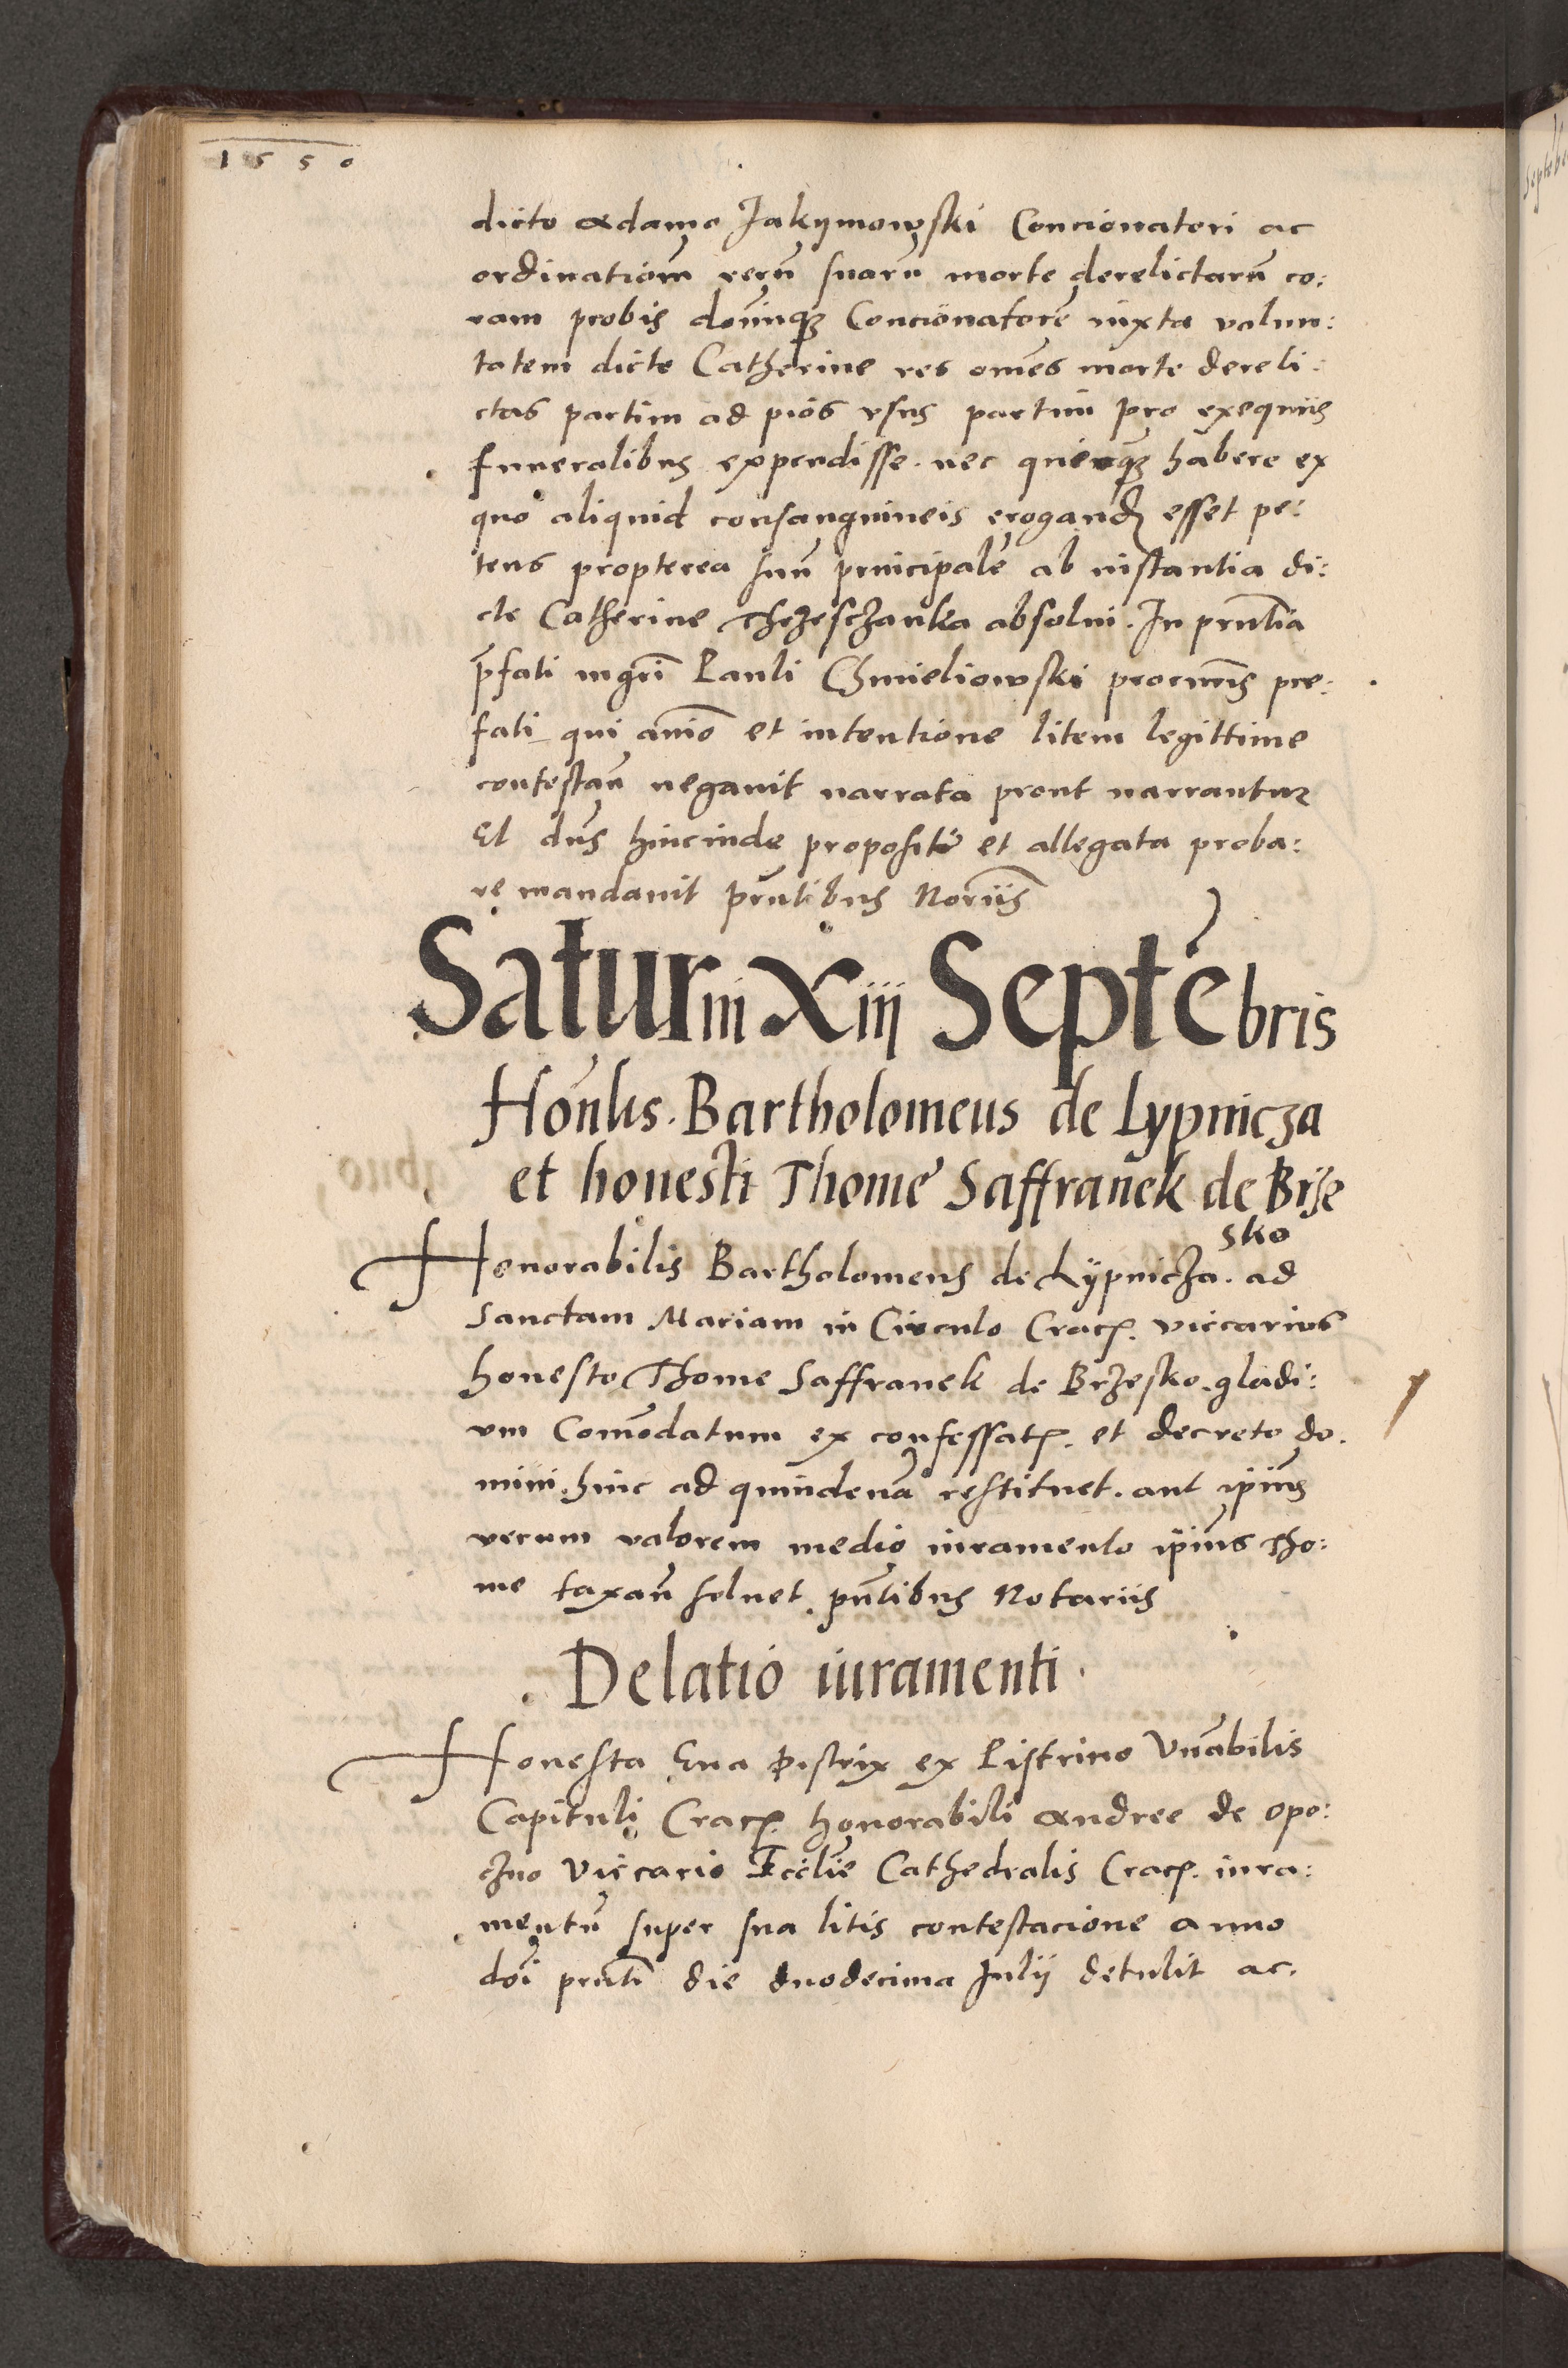 1550
dicto Adamo Jakymowski Concionatori ac
ordinationẽ rerũ suarũ morte derelictarũ co:
ram probis dominũq; Concionatorẽ iuxta volun:
tatem dicte Catherine res omẽs morte dereli:
ctas partim ad pios vsus partim pro exequiis
funeralibus expendisse. nec quicq; habere ex
quo aliquid consanguineis erogand esset pe:
tens propterea suũ principalẽ ab instantia di:
cte Catherine absolui. In pñtia
p̃fati mgrĩ Pauli Chmieliowski procuris pre:
fati qui aĩo et intentione litem legittime
contestañ negauit narrata prout narrantur
Et dñs hincinde proposita et allegata proba:
re mandauit pñtibus Noriis
Saturni Xiii Septẽbris
Honlis. Bartholomeus de Lypnicza
et honesti Thome Saffranek de Brze
sko
Honorabilis Bartholomeus de Lypnicza. ad
Sanctam Mariam in Circulo Crac. viccarius
honesto Thome Saffranek de Brzesko. gladi:
um Com̃odatum ex confessat. et decreto do.
mini. hinc ad quindenã restituet. aut ipius
verum valorem medio iuramento ipius Tho:
me taxañ soluet. pñtibus Notariis
Delatio iuramenti.
Honesta Eua Pistrix ex Pistrino Vnẽabilis
Capituli Crac. honorabili Andree de Opo:
czno Viccario Ecclie Cathedralis Crac. iura:
mentũ super sua litis contestacione anno
doĩ pñti die duodecima Julii detulit ac.
Septẽb